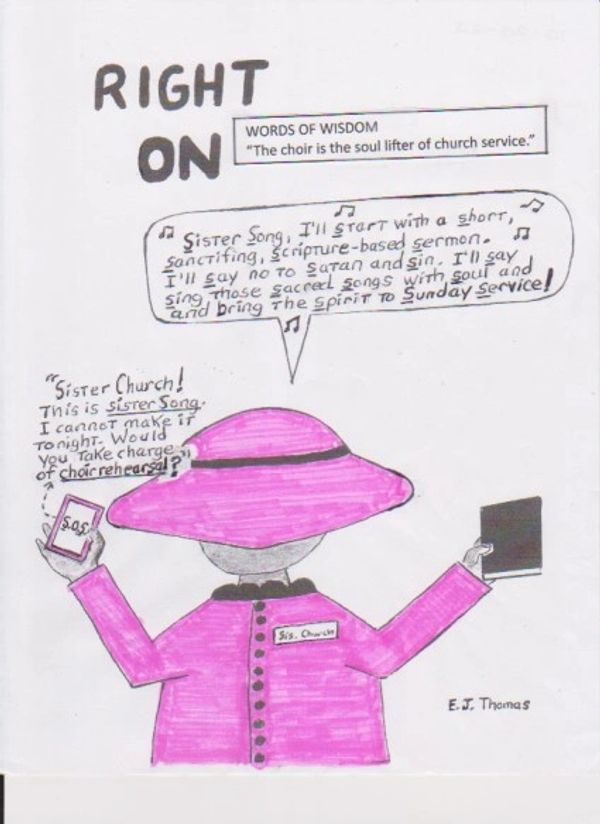 RIGHT
ON
WORDS OF WISDOM
"The choir is the soul lifter of church service."
Sister Song, I'll start with a short,
sanctifing, scripture-based sermon.
I'll say no to satan and sin. I'll say
sing those sacred songs with soul and
and bring the spirit to Sunday Service!
"Sister Church!
This is sister Song.
I cannot make it
tonight. Would
you take charge
of choir rehearsal?
S.O.S.
Sis. Church
E.J. Thomas